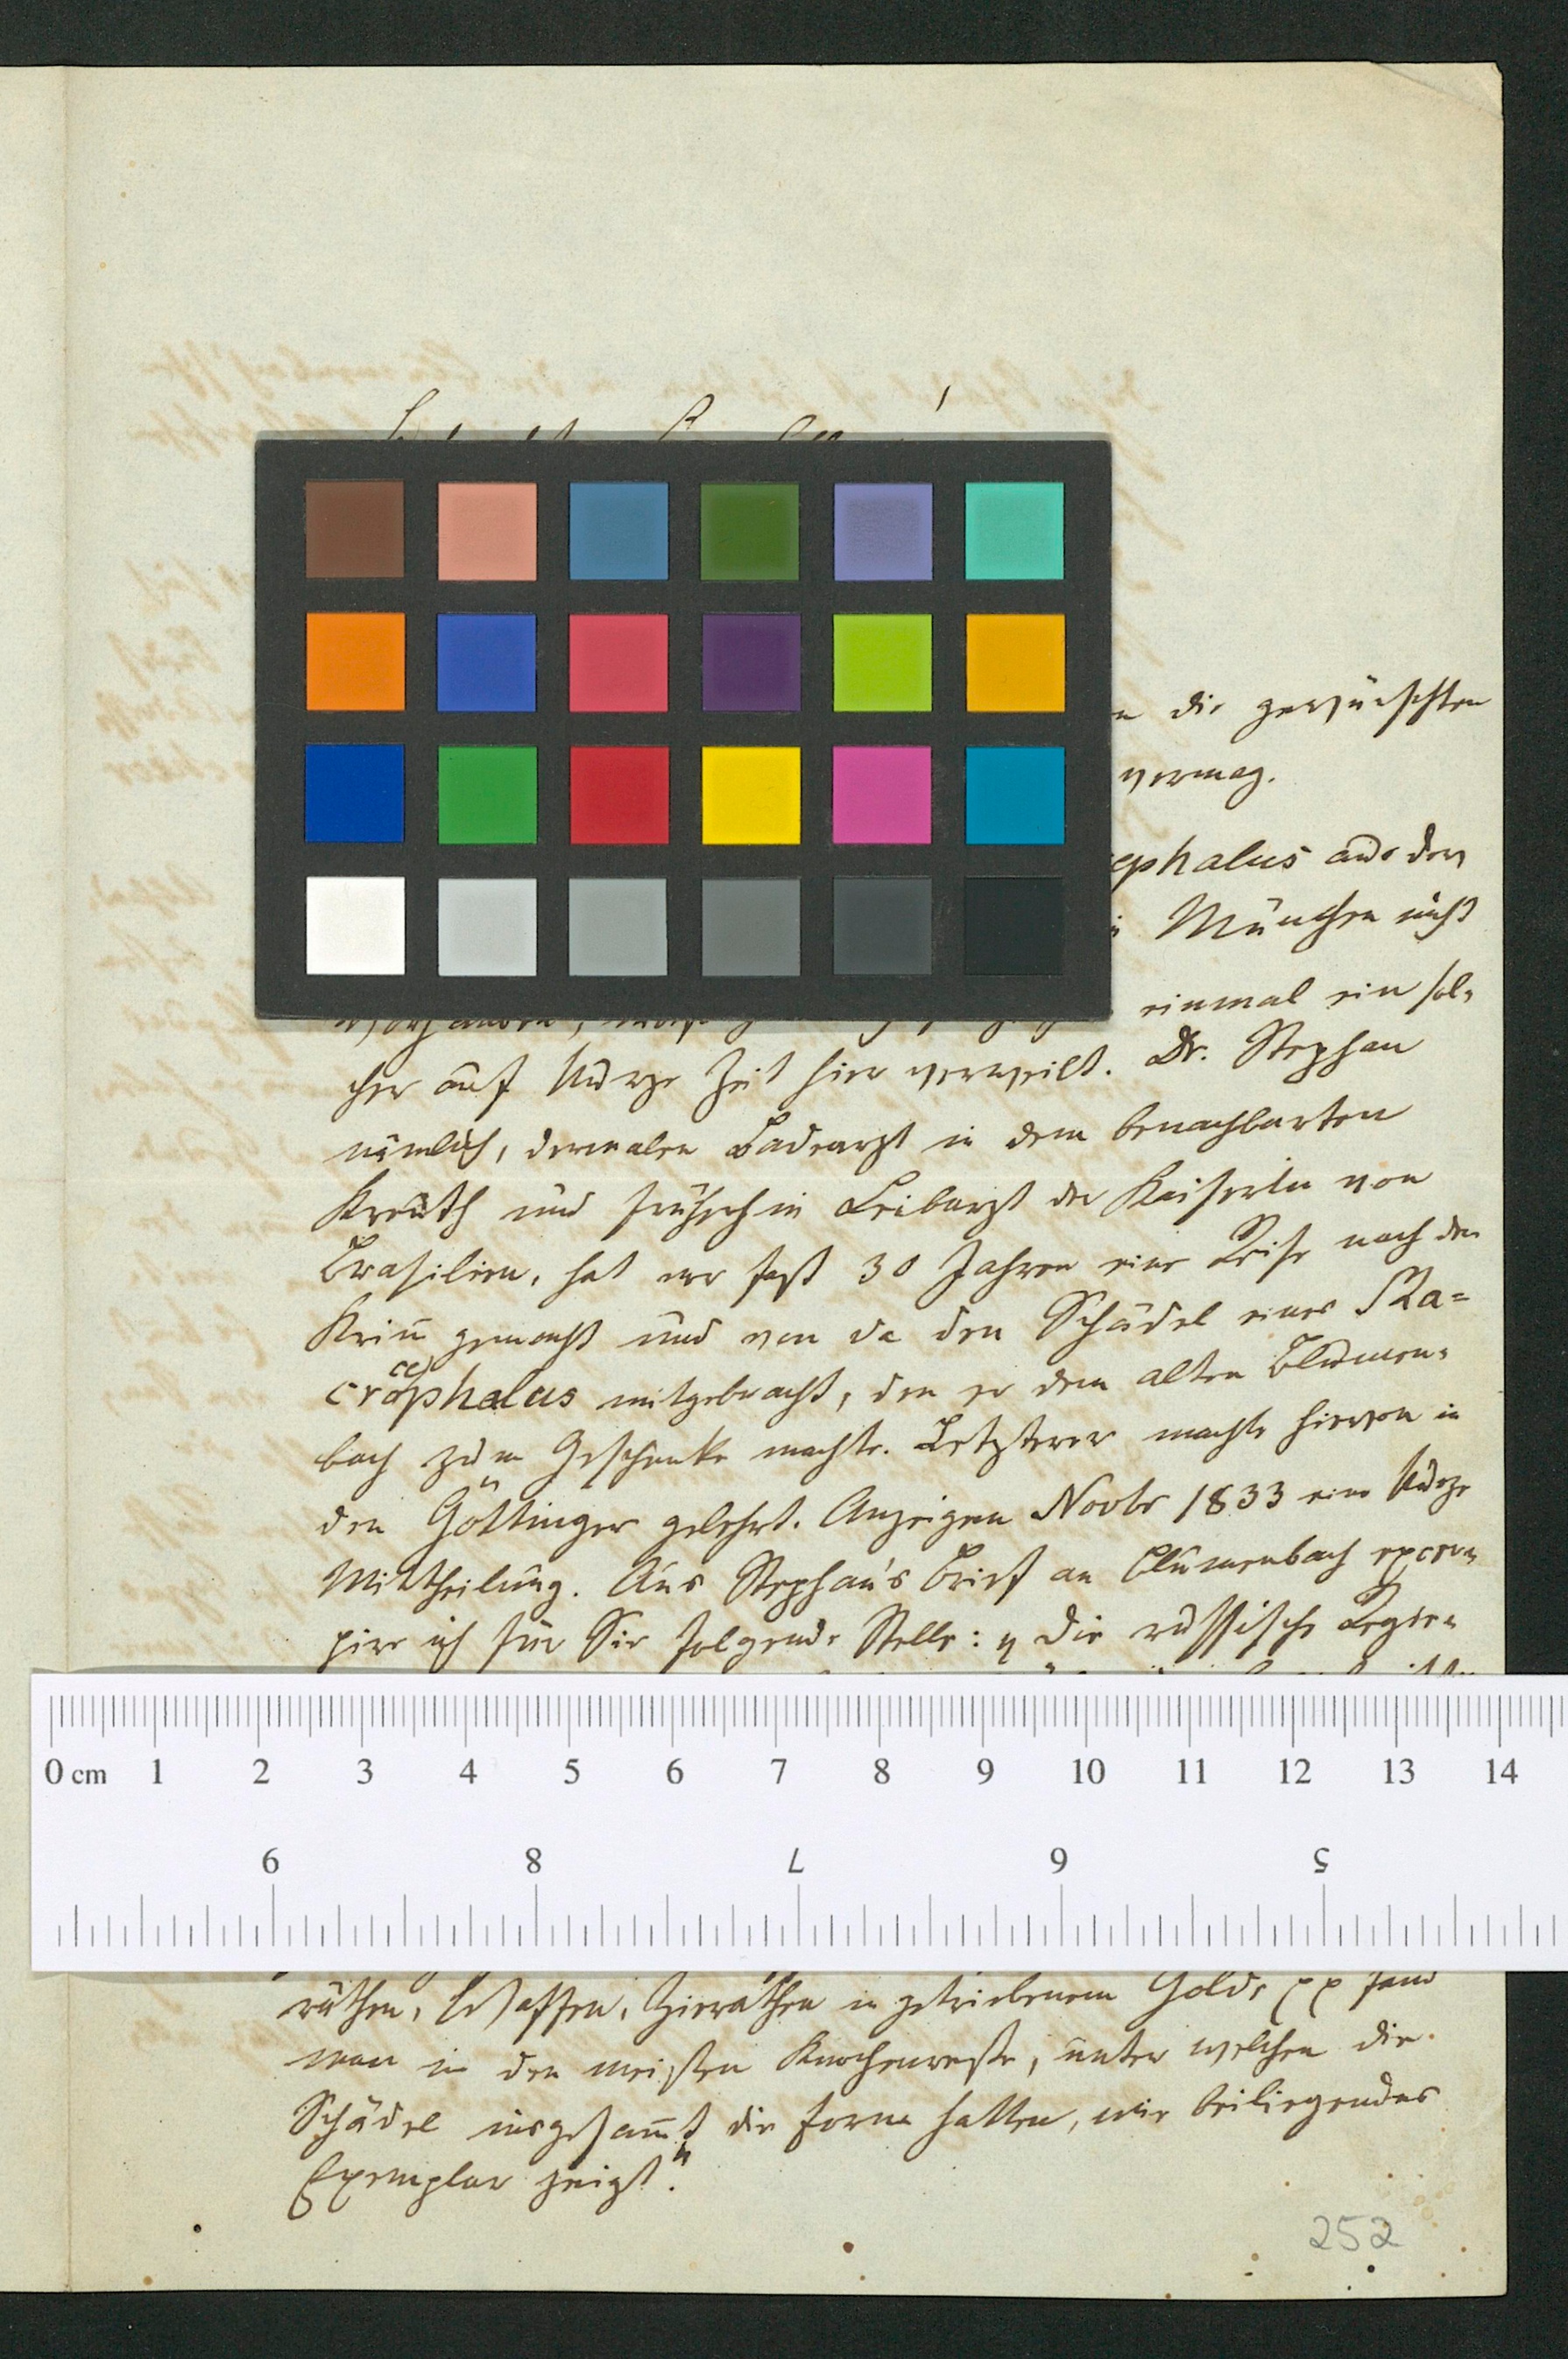 die gewünschten
vermag.
ephalus aus der
München nicht
einmal ein sol-
cher auf kurze Zeit hier verweilt. Dr. Stephan
nämlich, dermalen Badearzt in dem benachbarten
Kreuth und früherhin Leibarzt der Kaiserin von
Brasilien, hat vor fast 30 Jahren eine Reise nach der
Krim gemacht und von da den Schädel eines Ma=
crocephalus mitgebracht, den er dem alten Blumen-
bach zum Geschenke machte. Letzterer machte hievon in
den Göttinger gelehrt. Anzeigen Novbr 1833 eine kurze
Mittheilung. Aus Stephan's Brief an Blumenbach excer-
pire ich für Sie folgende Stelle: „Die russische Regie-
0 cm 1 2 3 4 5 6 7 8 9 10 11 12 13 14
9 8 7 6 5
räthen, Waffen, Zierathen in getriebenem Golde pp fand
man in den meisten Knochenreste, unter welchen die
Schädel insgesammt die Form hatten, wie beiliegendes
Exemplar zeigt."
252